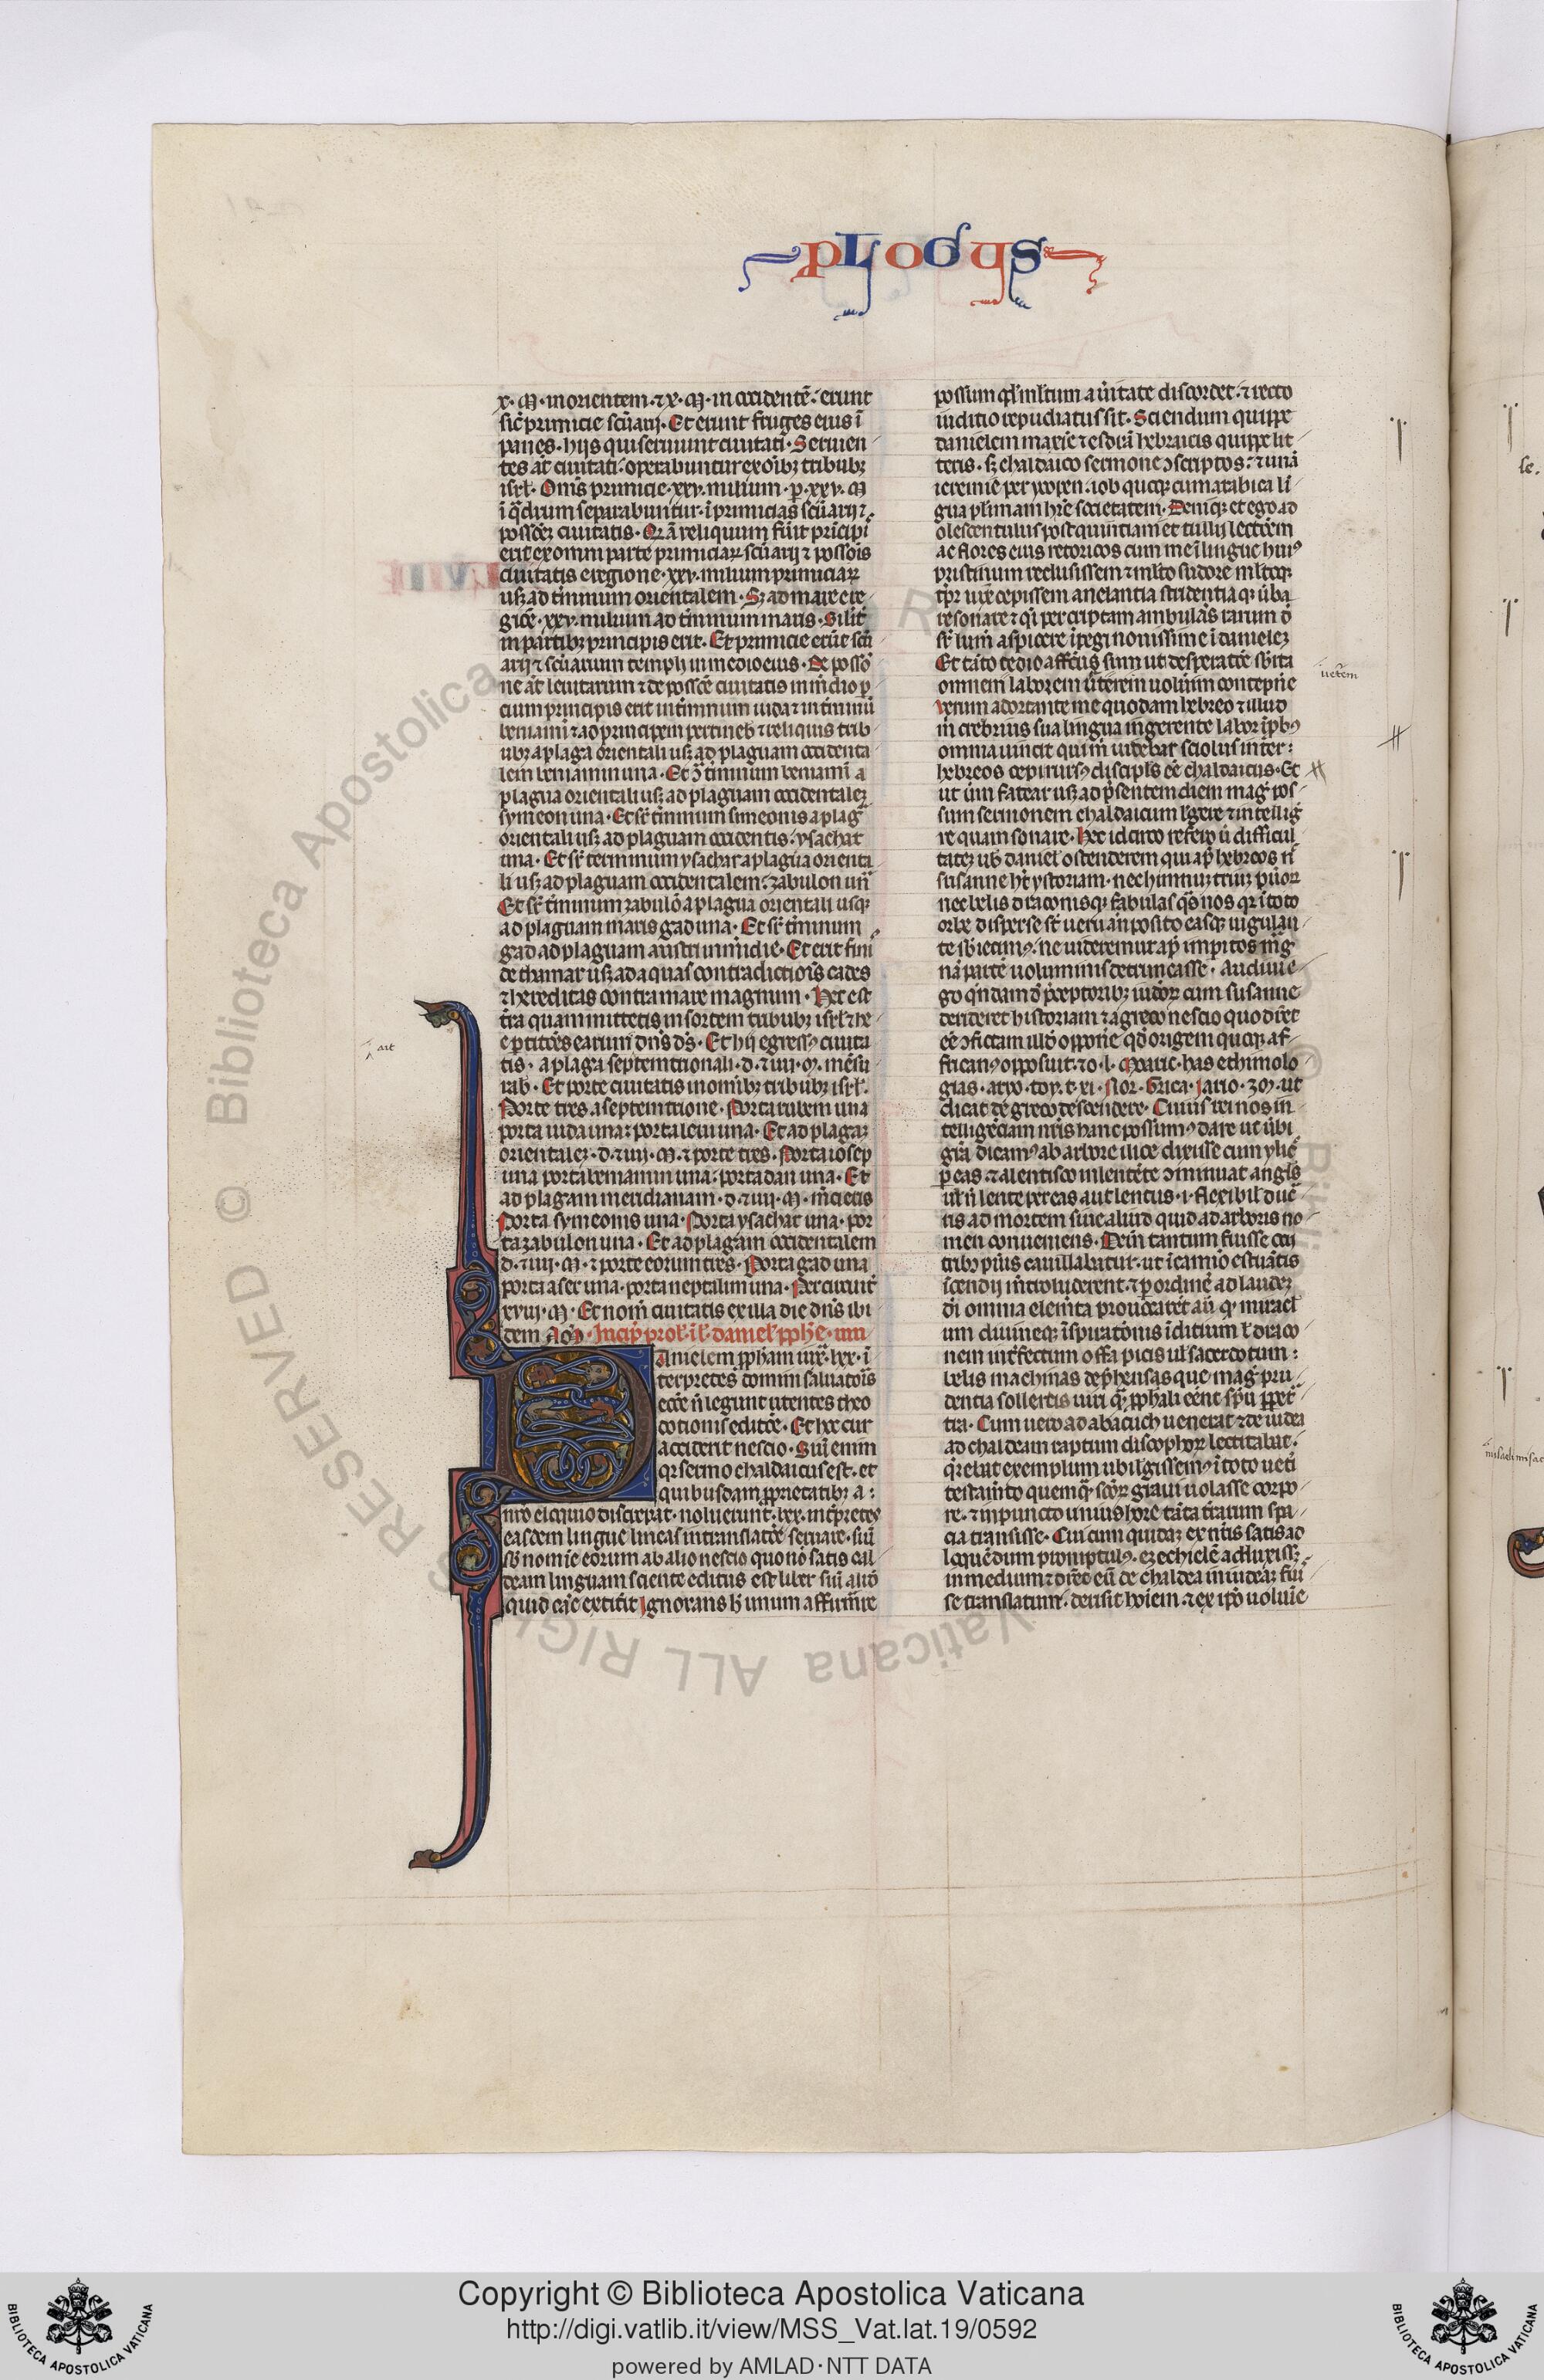 pLogus
x. M. in orientem. ⁊ x. M. in occidentē. erunt
sic̄ primicie sc̄uarij. Et erunt fruges eius ī
panes. hijs qui seruiunt ciuitati. Seruien
tes āt ciuitati: operabuntur ex oīb; tribub;
isrl̄. Om̄s primicie. xxv. milium. p. xxv. M
ī q̄drum separabuntur. ī primicias sc̄uarij ⁊
possōez ciuitatis. Qr̄ ā reliquum fūit prīcipi
erit ex omni parte primiciaꝝ sc̄uarij ⁊ possōis
ciuitatis e regione. xxv. milium primiciaꝝ
usꝫ ad t̄minum orientalem. Sꝫ ad mare e re
gōe. xxv. milium ad t̄minum maris. Silīt
in partibꝫ principis erit. Et primicie erūt sc̄u
arij ⁊ sc̄uarium templi in medio eius. De possō
ne āt leuitarum ⁊ de possōe ciuitatis in mdio p
cium principis erit in t̄minum iuda ⁊ in t̄minū
beniamī ⁊ ad principem pertineb ⁊ reliquis trib
ubꝫ a plaga orientali usꝫ ad plaguam occidenta
lem beniamin una. Et ꝯ t̄minum beniamī a
plagua orientali usꝫ ad plaguam occidentalez
symeon una. Et sr̄ t̄minum simeonis a plag
orientali usꝫ ad plaguam occidentis: ysachar
una. Et sr̄ terminum ysachar a plagua orienta
li usꝫ ad plaguam occidentalem: zabulon un
Et sr̄ t̄minum zabulō a plagua orientali usqꝫ
ad plaguam maris gad una. Et sr̄ t̄minum
gad ad plaguam austri in mīdiē. Et erit fini
de thamar usꝫ ad aquas contradictiōis cades
⁊ hereditas contra mare magnum. Hec est
t̄ra quam mittetis in sortem tribubꝫ isrl̄ ⁊ he
e ꝑtitōes earum dn̄s dꝰs. Et hij egressꝰ ciuita
tis. a plaga septemtrionali. d. ⁊ iiij. M. mēsu
rab. Et porte ciuitatis in omībꝫ tribubꝫ isrl̄.
Porte tres. a septemtrione. Porta rubem una
porta iuda una: porta leui una. Et ad plagaz
orientalez. d. ⁊ iiij. M. ⁊ porte tres. Porta iosep
una porta beniamin una: porta dan una. Et
ad plagam meridianam. d. ⁊ iiij. M. mcietis
Porta symeonis una. Porta ysachar una. por
ta zabulon una. Et ad plagam occidentalem
d. ⁊ iiij. M. ⁊ porte eorum tres. Porta gad una
porta aser una. porta neptalim una. Per circuit
xviij. M. Et nom̄ ciuitatis ex illa die dn̄s ibi
dem. Incip̄ prol. ī l. daniel pphe.
Danielem ppham iux. lxx. ī
terpretes domini saluatoris
ecc̄e n̄ legunt utentes theo
cotionis editōe. Et hoc cur
acciderit nescio. Siū enim
qꝛ sermo chaldaicus est. et
quibusdam ꝓprietatibꝫ a
nr̄o eloquio discrepat. noluerunt. lxx. int̄pretes
easdem lingue lineas in translatōe seruare. siū
sb nomīe eorum ab alio nescio quo nō satis cal
deam linguam sciente editus est liber siū aliō
quid cāe extitīt Ignorans h̄ unum affirmāe
possum qd̄ ml̄tum a ūitate discordet. ⁊ recto
iuditio repudiatus sit. Sciendum quippe
danielem maxīe ⁊ esdrā hebraicis quippe lit
teris. sꝫ chaldaico sermone ꝯscriptos: ⁊ unā
ieremie pericopen. iob quoqꝫ cum arabica li
gua plīmam hr̄e societatem. Deniqꝫ et ego ad
olescentulus post quintiani et tullij lectōem
ac flores eius retoricos cum me ī lingue huiꝰ
pristinum reclusissem ⁊ ml̄to sudore ml̄toqꝫ
tp̄r uix cepissem anelantia stridentiaqꝫ ūba
resonare ⁊ q̄i per criptam ambulās rarum d̄
sr̄ lum̄ aspicere īpegi nouissime ī danielez
Et tāto tedio affcūs sum ut desperatōe sb̄ita
omnem laborem ūterem uoluīm contepn̄e
Verum adortante me quodam hebreo ⁊ illud
m̄ crebrius sua lingua ingerente labor īpbꝰ
omnia uincit qui m̄ uidebar sciolus inter
hebreos cepi rursꝰ discipls eē chaldaicus. Et
ut ūm fatear usꝫ ad p̄sentem diem mag pos
sum sermonem chaldaicum legere ⁊ intellig
re quam sonare. Hec idcirco refero ū difficul
tatez ub̄ daniel ostenderem qui ap̄ hebreos n̄
susanne h̄t ystoriam. nec himnuz triuz p̄uor
nec belis draconisqꝫ fabulas q̄s nos qr̄ ī toto
orbe disperse sr̄ ueru an̄posito easqꝫ iugulan
te sbiecimꝰ. ne uideremur ap̄ imp̄itos mag
nā partē uoluminis detruncasse. Audiui e
go q̄ndam d̄ p̄ceptoribꝫ iudeoꝝ cum susanne
derideret historiam ⁊ a greco nescio quo diēt
eē ꝯfictam illd̄ oppōne qd̄ origem quoqꝫ af
fricanꝰ opposuit. has ethimolo
gias. ut
dicāt de greco descendere. Cuius rei nos in
telligēciam nr̄is hanc possumꝰ dare ut ūbi
gr̄a dicamꝰ ab arbore ilice dixisse cum ylice
peas. ⁊ a lentisco in lentēte ꝯminuat angls
ul̄ n̄ lente pereas aut lentus. i. flexibil ducē
ris ad mortem siue aliud quid ad arboris no
men conueniens. Dein̄ tantum fuisse ocij
tribꝫ pūis cauillabatur. ut ī camio estuātis
īcendij mt̄ro luderent. ⁊ p ordinē ad laudez
dī omnia elem̄ta prouocaret
um diuineqꝫ īspirātōnis īditium draco
nem int̄fectum offa picis ul̄ sacerdotum
belis machinas dep̄hensas que mag pru
dentia sollertis uiri q̄ pphali eēnt sp̄u ppet
tra. Cum uero ad abacuch ueneat ⁊ de iudea
ad chaldeam raptum discophoꝝ lectitabat
q̄rebat exemplum ubi lgissemꝰ ī toto ueti
testam̄to quemq̄ scōꝝ graui uolasse corpo
re. ⁊ in puncto unius hore tāta tr̄arum spa
cia transisse. Cui cum quidaz ex nr̄is satis ad
loquēdum promptulꝰ. ezechielē adduxissꝫ
in medium ⁊ diēet eū de chaldea in iudeaz fui
se translatum. derisit hoīem ⁊ ex ip̄o uolumīe
uetem
ait
le.
misaeli
Copyright © Biblioteca Apostolica Vaticana
http://digi.vatlib.it/view/MSS_Vat.lat.19/0592
powered by AMLAD·NTT DATA
BIBLIOTECA APOSTOLICA VATICANA
BIBLIOTECA APOSTOLICA VATICANA
© Biblioteca Apostolica Vaticana ALL RIGHTS RESERVED